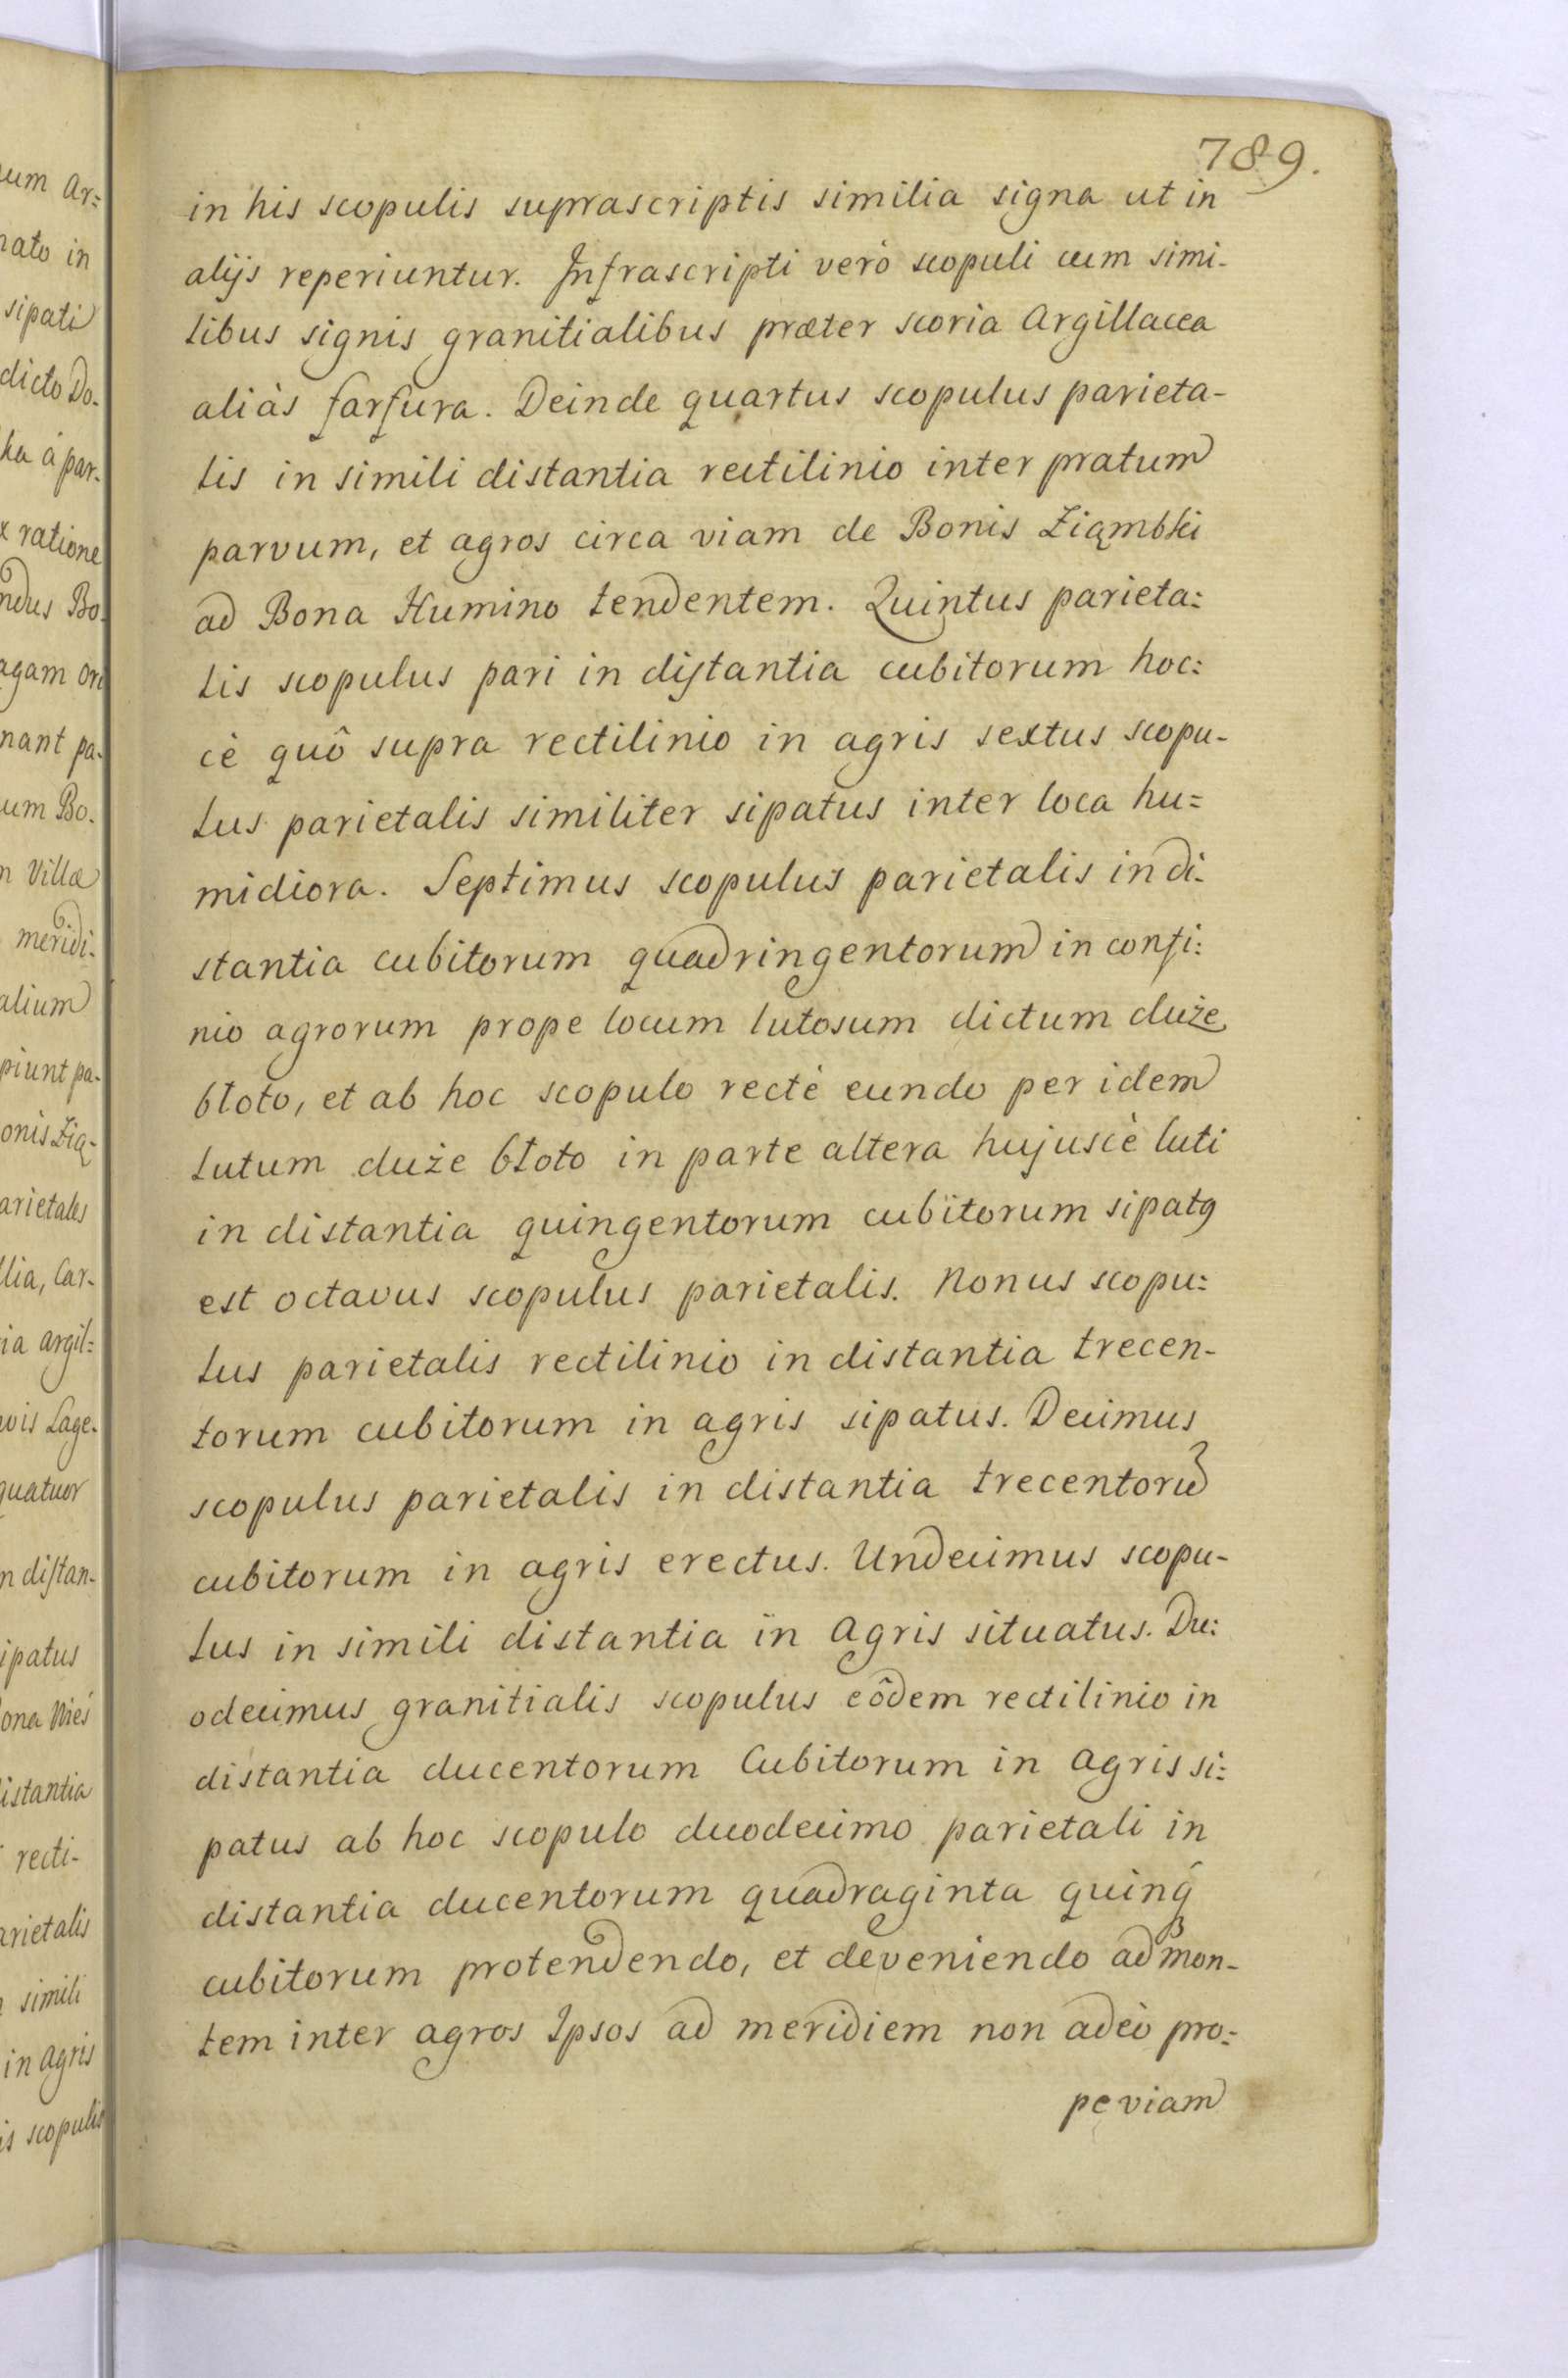 789.
in his scopulis suprascriptis similia signa ut in
alijs reperiuntur. Infrascripti verò scopuli cum simi-
libus signis granitialibus præter scoria Argillacea
aliàs farfura. Deinde quartus scopulus parieta-
lis in simili distantia rectilinio inter pratum
parvum, et agros circa viam de Bonis Ziąmbki
ad Bona Humino tendentem. Quintus parieta=
lis scopulus pari in distantia cubitorum hoc=
cè quô supra rectilinio in agris sextus scopu-
lus parietalis similiter sipatus inter loca hu=
midiora. Septimus scopulus parietalis in di-
stantia cubitorum quadringentorum in confi=
nio agrorum prope locum lutosum dictum duże
błoto, et ab hoc scopulo rectè eundo per idem
lutum duże błoto in parte altera hujuscè luti
in distantia quingentorum cubitorum sipatꝰ
est octavus scopulus parietalis. Nonus scopu=
lus parietalis rectilinio in distantia trecen-
torum cubitorum in agris sipatus. Decimus
scopulus parietalis in distantia trecentorū
cubitorum in agris erectus. Undecimus scopu-
lus in simili distantia in Agris situatus. Du=
odecimus granitialis scopulus eôdem rectilinio in
distantia ducentorum Cubitorum in Agris si=
patus ab hoc scopulo duodecimo parietali in
distantia ducentorum quadraginta quinq́
cubitorum protendendo, et deveniendo ad Mon-
tem inter agros Ipsos ad meridiem non adeò pro=
pe viam
um Ar=
nato in
sipati
dicto Do-
ka à par-
x ratione
ndus Bo-
nant pa-
um Bo-
n Villæ
meridi-
alium
piunt pa-
onis Zią-
arietales
lia, Car-
ia argil=
vis Lage-
quatuor
n distan-
ipatus
ona Mieś
istantia
recti-
arietalis
simili
in Agris
is scopulis